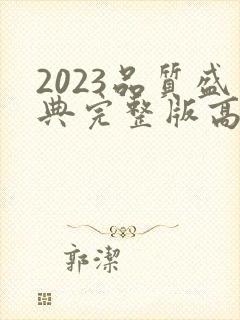 2023品質盛
典完整版高
郭潔